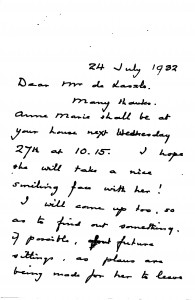 24 July 1932
Dear Mr de Laszlo.
Many thanks.
Anne Marie shall be at
your house next Wednesday
27th at 10.15. I hope
she will take a nice
smiling face with her!
I will come up too, so
as to find out something,
if possible, future
sittings, as plans are
being made for her to leave